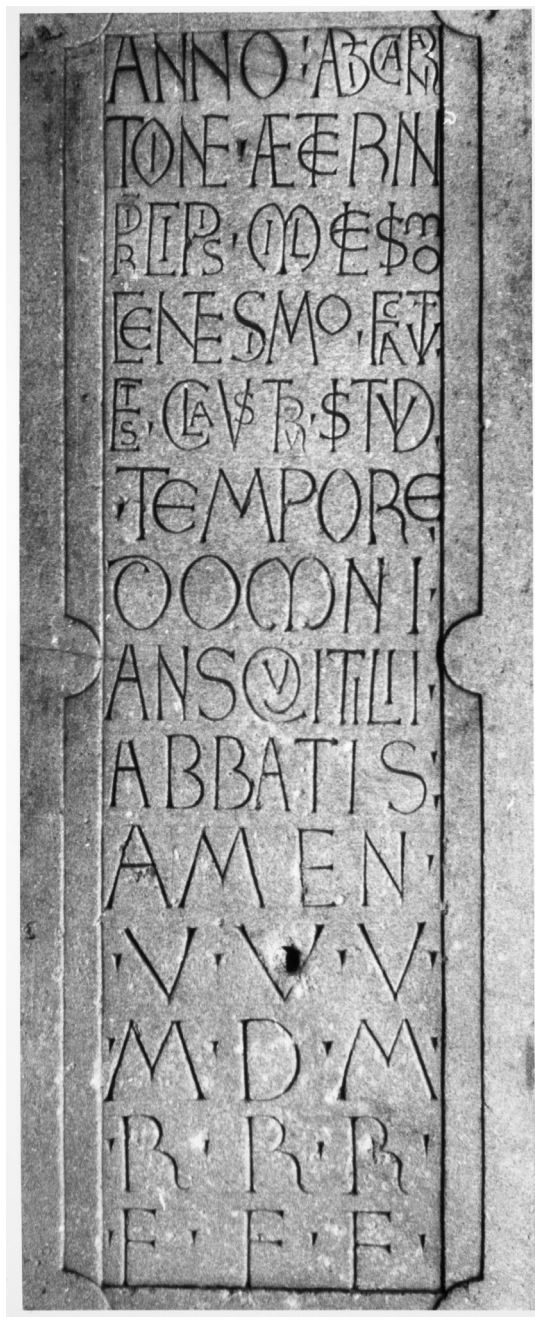 ANNO : AB INCARNA
TIONE ' ÆTERNI
PRINCIPIS ' MILLESIMO
CENTESIMO ' FACTV
EST ' CLAVSTRV ' ISTVD
' TEMPORE
DOMNI '
ANSQVITILII '
ABBATIS :
AMEN '
' V ' V ' V '
' M ' D ' M '
' R ' R ' R '
' F ' F ' F '